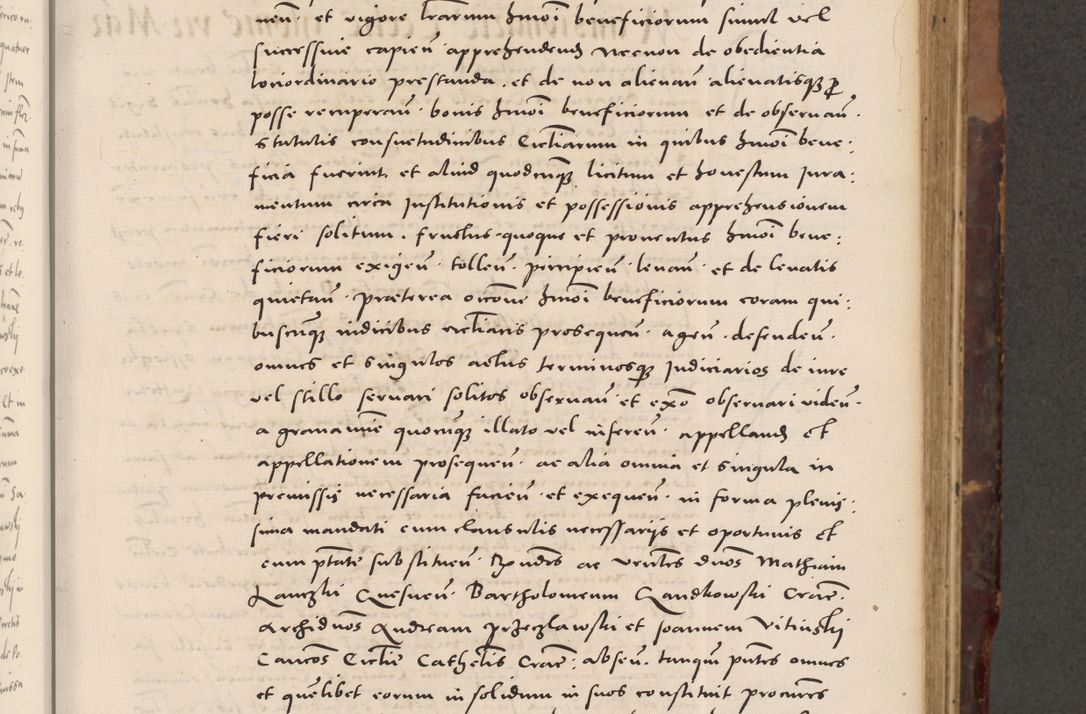 neñ et vigore lrarum hmõi beneficiorum simul vel
successive capieñ apprehendend necnon de obedientia
lociordinario prestanda . et de non alienañ alienatisqz
posse recuperañ . bonis hmõi beneficiorum et de observañ .
statutis consuetudinibus Ecclíarum in quibus hmõi bene:
ficia fuerint, et aliud quodcunqz licitum et honestum Jura:
mentum circa Institutionis et possessionis apprehensionem
fieri solitum . fructus quoque et proventus hmõi bene:
ficiorum exigeñ . tolleñ . percipieñ . levañ . et de levatis
quietañ . praeterea occõne hmõi beneficiorum coram qui:
buscunqz iudicibus eccliacis prosequeñ . ageñ . defendeñ .
omnes et singulos actus terminosqz Judiciarios de iure
vel stillo servari solitos observañ . et exño observari videñ .
a gravamie quocunqz illato vel infereñ . appelland et
appellationem prosequeñ . ac alia omnia et singula in
premissis necessaria facieñ . et exequeñ . in forma plenis:
sima mandati cum clausulis necessarijs et oportunis et
cum ptate substitueñ . Rndos ac Venles dnos Mathiam
Lanczki Gnesneñ . Bartholomeum Gandkowski Cracẽ .
Archidnos Andream przeczlawski et Joannem Vitinski
Canco̅s Ecclie Cathelis Cracẽ . abseñ . tanquam pñtes omnes
et quemlibet eorum in solidum in suos constituit procures